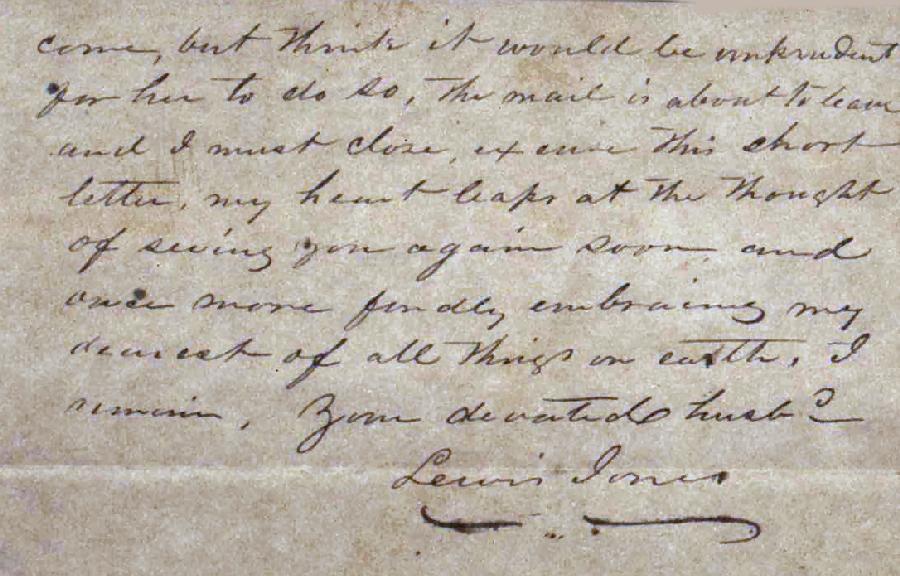 come, but think it would be imprudent
for her to do so, the mail is about to leave
and I must close, excuse this short
letter, my heart leaps at the thought
of seeing you again soon, and
once more fondly embracing my
dearest of all things on earth, I
remain, Your devoted husbd
Lewis Jones